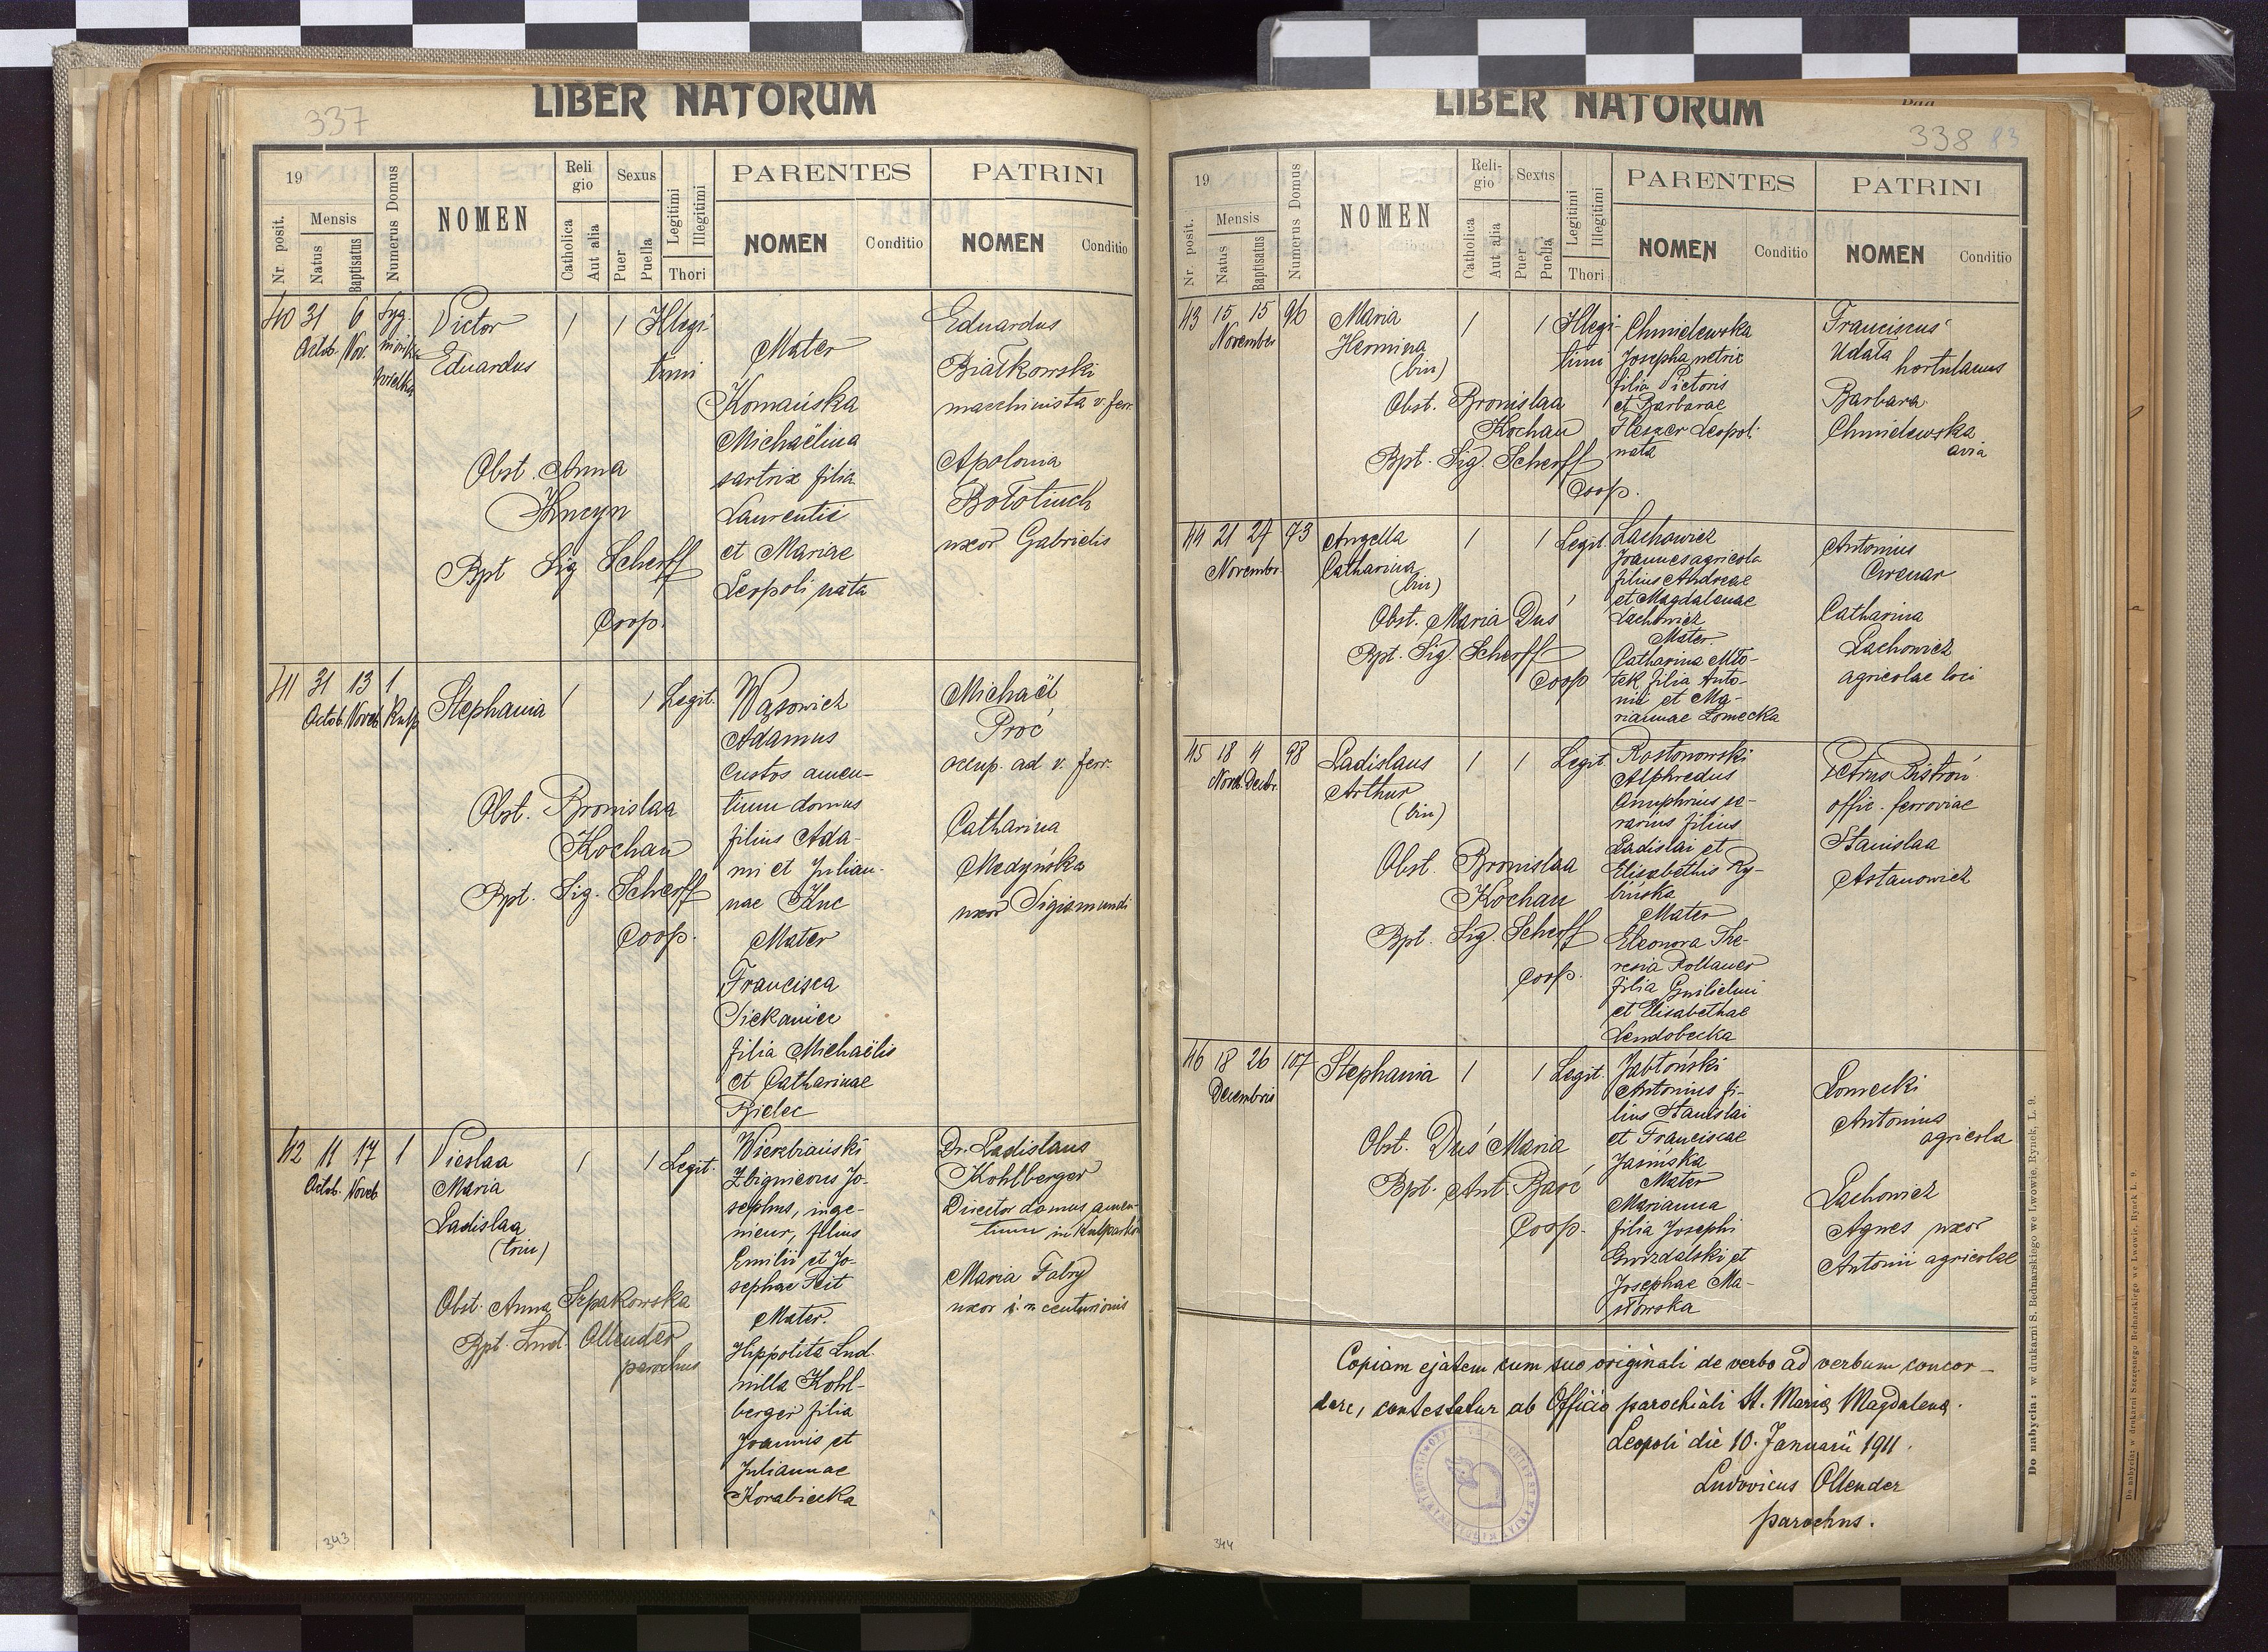 337
LIBER NATORUM
19
Nr. posit.
Mensis
Natus
Baptisatus
Numerus Domus
NOMEN
Religio
Catholica
Aut alia
Sexus
Puer
Puella
Legitimi
Illegitimi
Thori
PARENTES
NOMEN
Conditio
PATRINI
NOMEN
Conditio
40 31 6
Octob. Nov.
wielka
Victor
Eduardus
1 1 Illegi-
timi
Obst. Anna
Bpt Sig Scherff
Coop.
Mater
Komańska
Michaëlina
sartrix filia
Laurentii
et Mariae
Leopoli nata
Eduardus
Białkowski
macchinista v. ferr.
Apolonia
Bołotiuch
uxor Gabrielis
41 31 13 1
Octob. Novb. Kulp
Stephania
1 1 Legit.
Obst. Bronislaa
Kochan
Bpt. Sig. Scherff
Coop.
Wąsowicz
Adamus
custos amen-
tium domus
filius Ada-
mi et Julian-
nae Kuc
Mater
Francisca
Siekaniec
filia Michaëlis
et Catharinae
Bielec
Michaël
Proć
occup. ad v. ferr.
Catharina
Medyńska
uxor Sigismundi
42 11 17 1
Octob. Novb.
Vieslaa
Maria
Ladislaa
(trin)
1 1 Legit.
Obst. Anna Szpakowska
Bpt. Lud. Ollender
parochus
Wierzbiański
Zbigneus Jo-
sephus, inge-
nieur, filius
Emilii et Jo-
sephae Teit
Mater.
Hippolita Lud-
milla Kohl-
berger filia
Joannis et
Juliannae
Korabiecka
Dr. Ladislaus
Kohlberger
Director domus amen-
tium in Kulparków
Maria Fabry
uxor centurionis
343
LIBER NATORUM
Pag.
338 83
19
Nr. posit.
Mensis
Natus
Baptisatus
Numerus Domus
NOMEN
Religio
Catholica
Aut alia
Sexus
Puer
Puella
Legitimi
Illegitimi
Thori
PARENTES
NOMEN
Conditio
PATRINI
NOMEN
Conditio
43 15 15 96
November
Maria
Hermina
(bin)
1 1 Illegi-
timi
Obst. Bronislaa
Kochan
Bpt. Sig. Scherff
Coop.
Chmielewska
Josepha netrix
filia Victoris
et Barbarae
Leopoli
nata
Franciscus
Udała
hortulanus
Barbara
Chmielewska
avia
44 21 27 73
Novembr.
Angella
Catharina
(bin)
1 1 Legit.
Obst. Maria Duś
Bpt. Sig. Scherff
Coop
Lachowicz
Joannes agricola
filius Andreae
et Magdalenae
Lachowicz
Mater
Catharina Mło-
tek filia Anto-
nii et Ma-
riannae Łomecka
Antonius
Cwenar
Catharina
Lachowicz
agricolae loci
45 18 4 98
Novb. Decbr.
Ladislaus
Arthur
(bin)
1 1 Legit.
Obst. Bronislaa
Kochan
Bpt. Sig. Scherff
Coop.
Rostonowski
Alphredus
Onuphrius se-
rarius filius
Ladislai et
Elisabethis Ry-
bińska
Mater
Eleonora The-
resia Rollauer
filia Guilielmi
et Elisabethae
Lendobecka
Petrus Bistroń
offic. ferroviae
Stanislaa
Astanowicz
46 18 26 107
Decembris
Stephania
1 1 Legit.
Obst. Duś Maria
Bpt. Ant. Baść
Coop.
Jabłoński
Antonius fi-
lius Stanislai
et Franciscae
Jasińska
Mater
Marianna
filia Josephi
Gwizdalski et
Josephae Ma-
słowska
Łomecki
Antonius
agricola
Lachowicz
Agnes uxor
Antonii agricolae
Copiam ejatem cum suo originali de verbo ad verbum concor-
dare, contestatur ab Officio parochiali St. Mariæ Magdalenæ.
Leopoli die 10. Januarii 1911.
Ludovicus Ollender
parochus.
344
Do nabycia: w drukarni S. Bednarskiego we Lwowie, Rynek, L. 9.
Do nabycia: w drukarni Szczęsnego Bednarskiego we Lwowie, Rynek L. 9.